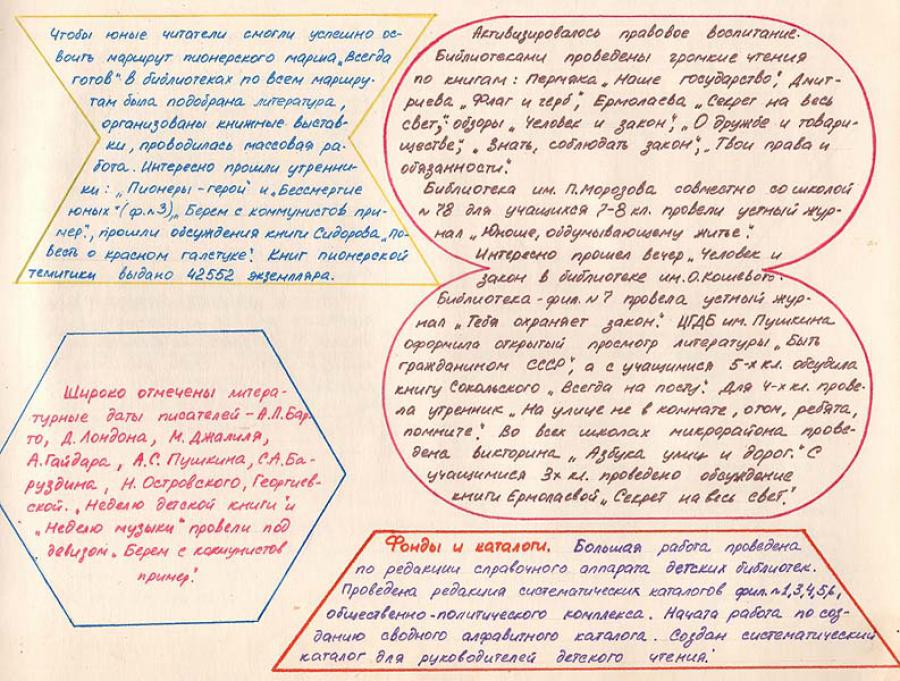 Чтобы юные читатели смогли успешно ос-
воить маршрут пионерского марша „Всегда
готов" в библиотеках по всем маршру-
там была подобрана литература,
организованы книжные выстав-
ки, проводилась массовая ра-
бота. Интересно прошли утренни-
ки: „Пионеры-герои" и „Бессмертие
юных" (ф.№3), „Берем с коммунистов при-
мер", прошли обсуждения книги Сидорова „По-
весть о красном галстуке". Книг пионерской
тематики выдано 42552 экземпляра.
Широко отмечены литера-
турные даты писателей - А.Л.Бар-
то, Д. Лондона, М. Джалиля,
А.Гайдара, А.С. Пушкина, С.А.Ба-
руздина, Н. Островского, Георгиев-
ской. „Неделю детской книги" и
„Неделю музыки" провели под
девизом „Берем с комунистов
пример".
Активизировалось правовое воспитание.
Библиотеками проведены громкие чтения
по книгам: Пермяка „Наше государство", Дмит-
риева „Флаг и герб", Ермолаева „Секрет на весь
свет", обзоры „Человек и закон", „О дружбе и товари-
ществе", „Знать, соблюдать закон", „Твои права и
обязанности".
Библиотека им. П.Морозова совместно со школой
№78 для учащихся 7-8 кл. провели устный жур-
нал „Юноше, обдумывающему житье".
Интересно прошел вечер „Человек и
закон в библиотеке им.О.Кошевого.
Библиотека-фил.№7 провела устный жур-
нал „Тебя охраняет закон". ЦГДБ им. Пушкина
оформила открытый просмотр литературы „Быть
гражданином СССР", а с учащимися 5-х кл. обсудила
книгу Сокальского „Всегда на посту". Для 4-х кл. прове-
ла утренник „На улице не в комнате, о том, ребята,
помните". Во всех школах микрорайона прове-
дена викторина „Азбука улиц и дорог." С
учащимися 3х кл. проведено обсуждение
книги Ермолаевой „Секрет на весь свет".
Фонды и каталоги. Большая работа проведена
по редакции справочного аппарата детских библиотек.
Проведена редакция систематических каталогов фил.№1,3,4,5,6,
общественно-политического комплекса. Начата работа по соз-
данию сводного алфавитного каталога. Создан систематический
каталог для руководителей детского чтения.